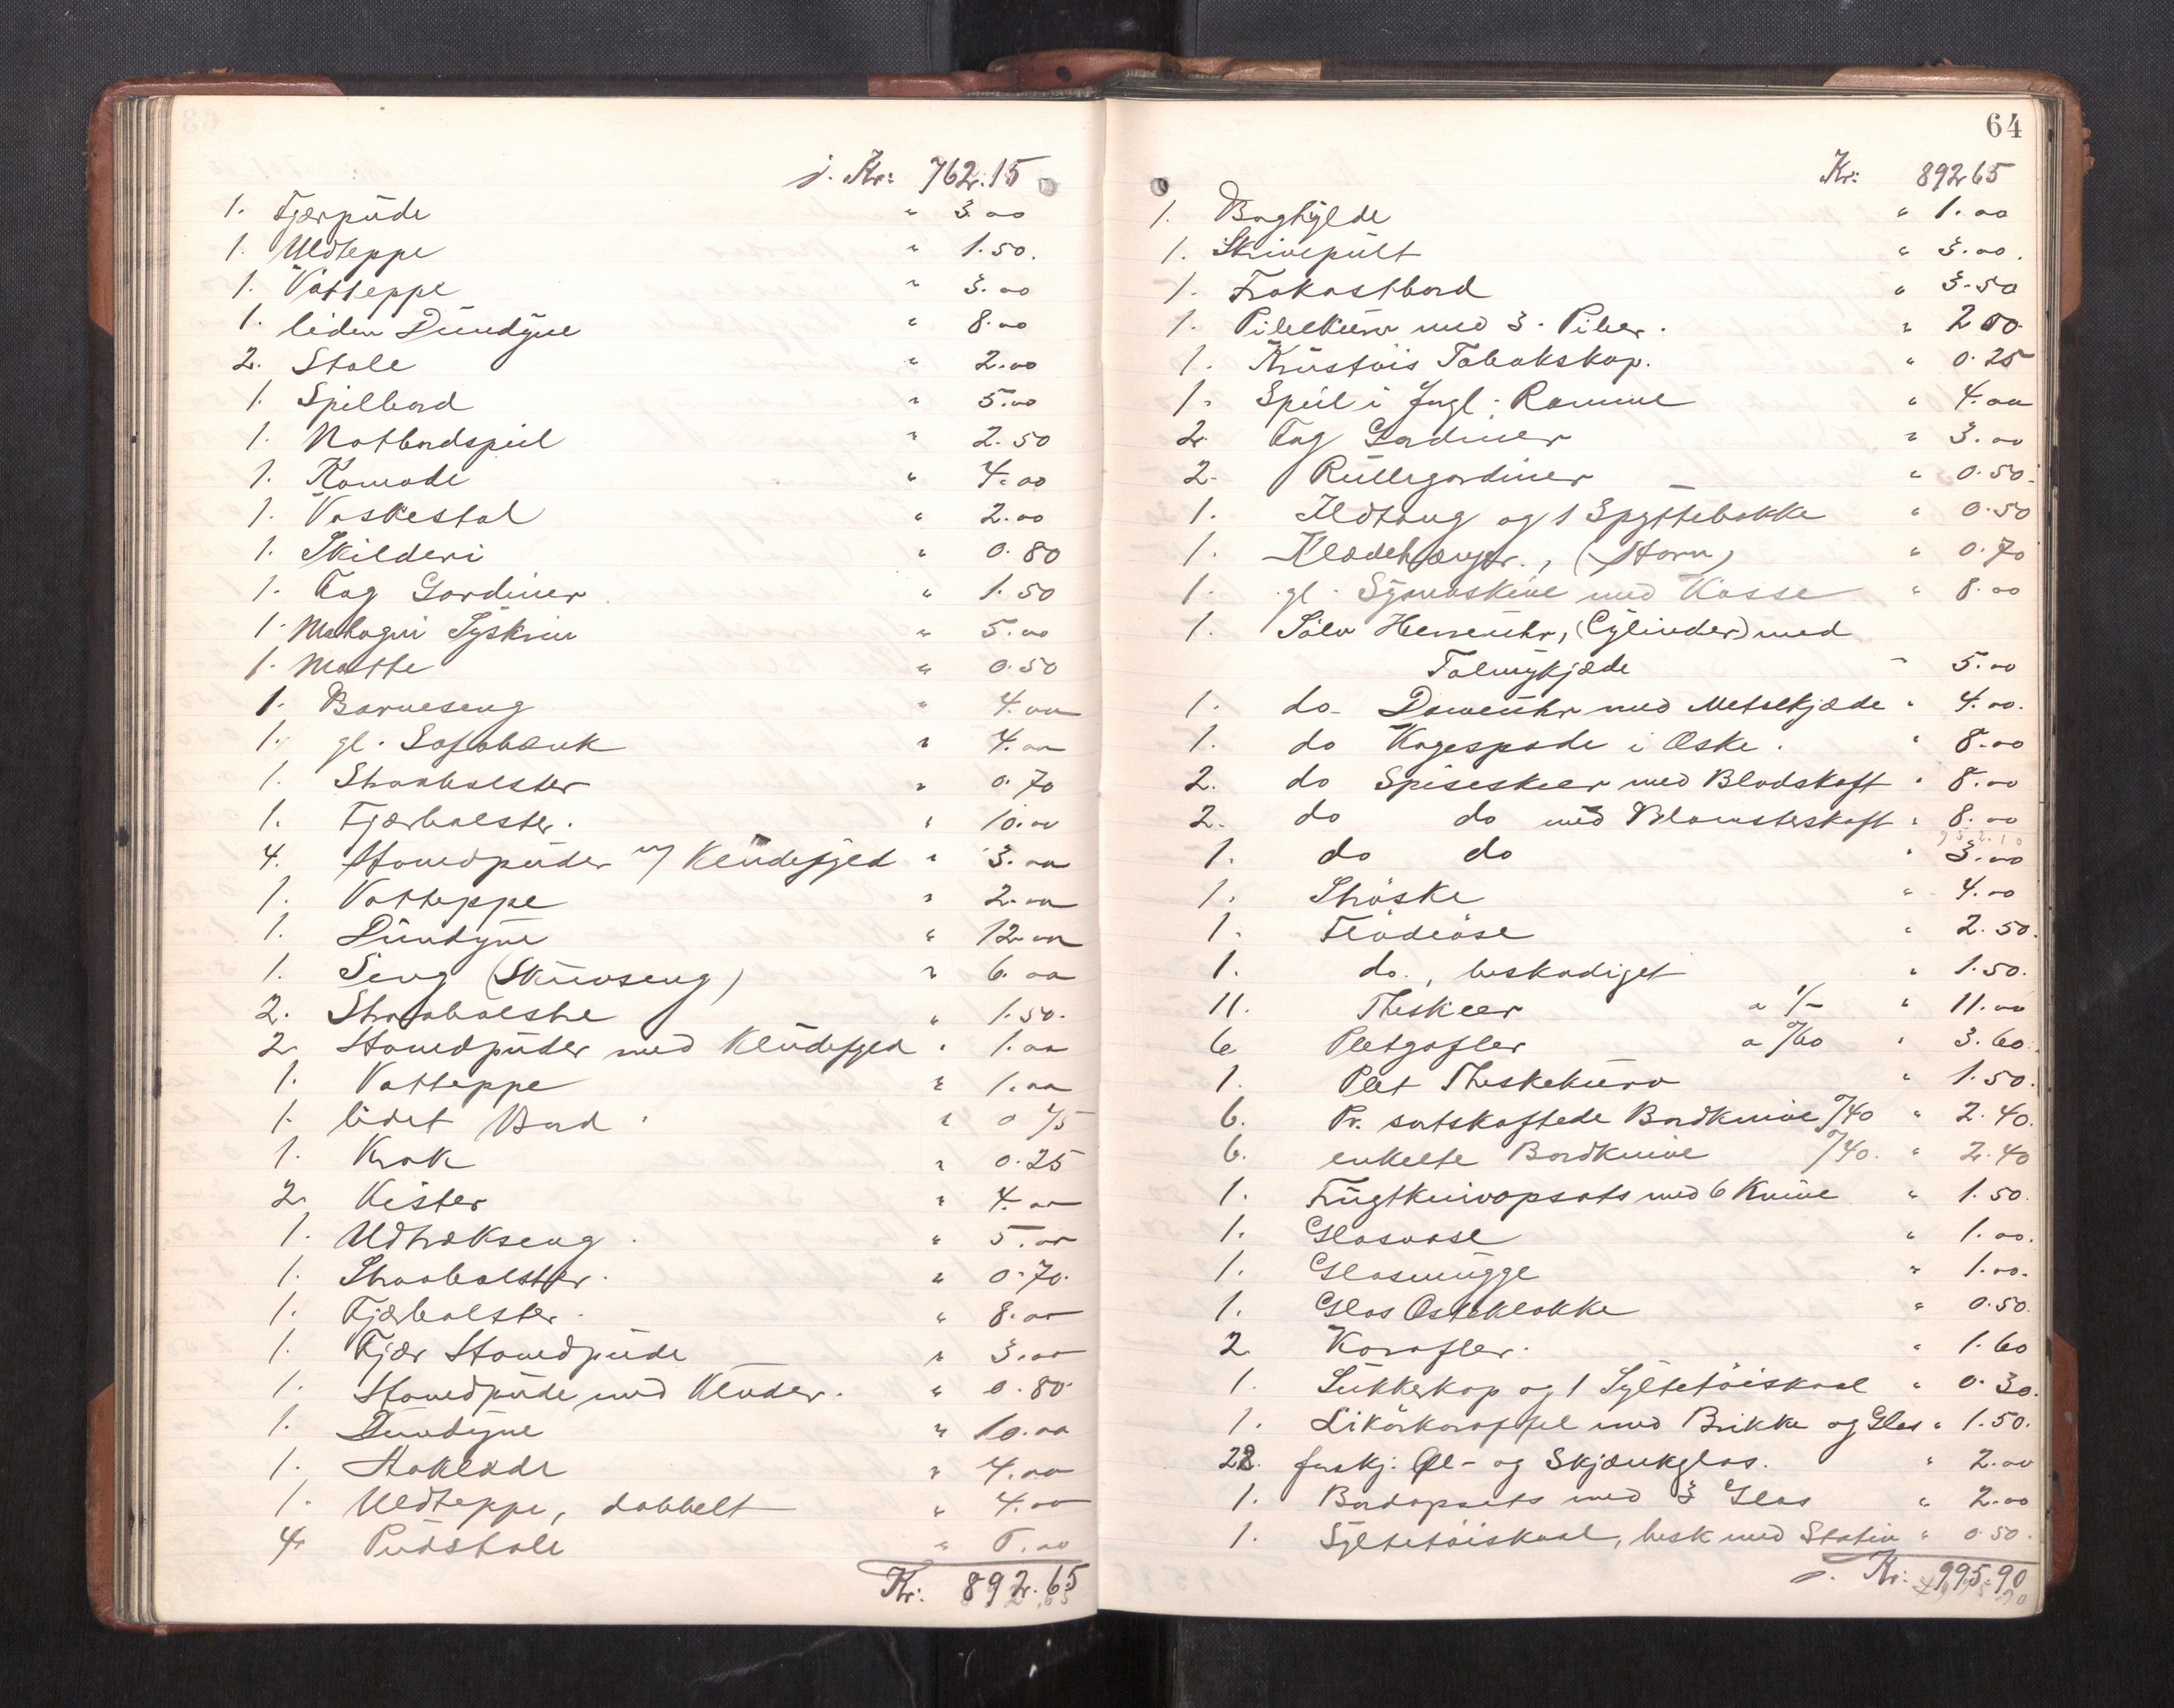 j. Kr: 762.15
1. Fjærpude " 3.00
1. Uldteppe " 1.50.
1. Vatteppe " 3.00
1. liden Dundyne " 8.00
2. Stole " 2.00
1. Spilbord " 5.00
1. Natbordspeil " 2.50
1. Komode " 4.00
1. Vaskestol " 2.00
1. Skilderi " 0.80
1. Fag Gardiner " 1.50
1. Mahogni Syskrin " 5.00
1. Matte " 0.50
1. Barneseng " 4.00
1. gl. Sofabænk " 4.00
1. Straabolster " 0.70
1. Fjærbolster. " 10.00
4. Hovedpuder m/ Kludefyld " 3.00
1. Vatteppe " 2.00
1. Dundyne " 12.00
1. Seng (Skruvseng) " 6.00
2. Straabolstre " 1.50.
2 Hovedpuder med Kludefyld " 1.00
1. Vatteppe " 1.00
1. lidet Bord " 0 75
1. Krak " 0.25
2. Kister " 4.00
1. Udtrækseng " 5.00
1. Straabolster. " 0.70.
1. Fjærbolster. " 8.00
1. Fjær Hovedpude " 3.00
1. Hovedpude med Kluder. " 0.80
1. Dundyne " 10.00
1. Aaklæde " 4.00
1. Uldteppe, dobbelt " 4.00
4 Pudsstole
Kr: 892.65
64
Kr: 892 65
1. Boghylde " 1.00
1. Skrivepult " 3.00.
1. Frokostbord " 3.50
1. Pibekurv med 3. Piber. " 2 00
1. Krustøis Tobakskop. " 0.25
1. Speil i Jngl: Ramme " 4.00
2. Fag Gardiner " 3.00
2. Rullegardiner " 0.50.
1. Ildtang og 1 Spyttebakke " 0.50
1. Klædehænger., (Horn) " 0.70
1. gl. Symaskine med Kasse " 8.00
1. Sølv Herreuhr, (Cylinder) med
Talmykjæde " 5.00
1. do. Dameuhr med Metalkjæde " 4.00.
1. do Kagespade i Æske. " 8.00
2. do Spiseskeer med Bladskaft " 8.00
2. do do med Blomsterskaft " 8.00
1. do do " 3.00
1. Strøske " 4.00
1. Flødeøse " 2.50.
1. do., beskadiget " 1.50.
11. Theskeer a 1/- " 11.00
6 Pletgafler a 0/60 " 3.60.
1. Plet Theskekurv " 1.50.
6. Pr. sortskaftede Bordknive 0/40 " 2.40.
6. enkelte Bordknive 0/40. " 2.40
1. Frugtknivopsats med 6 Knive " 1.50.
1. Glasvase " 1.00.
1. Glasmugge " 1.00.
1. Glas Osteklokke " 0.50.
2 Karafler. " 1.60
1. Sukkerkop og 1 Syltetøiskaal " 0.30.
1. Likørkaraffel med Brikke og Glas " 1.50.
22. forskj: Øl- og Skjænkglas. " 2.00
1. Bordopsats med 3 Glas " 2.00
1. Syltetøiskaal, besk med Stativ " 0.50.
j. Kr: 995.90